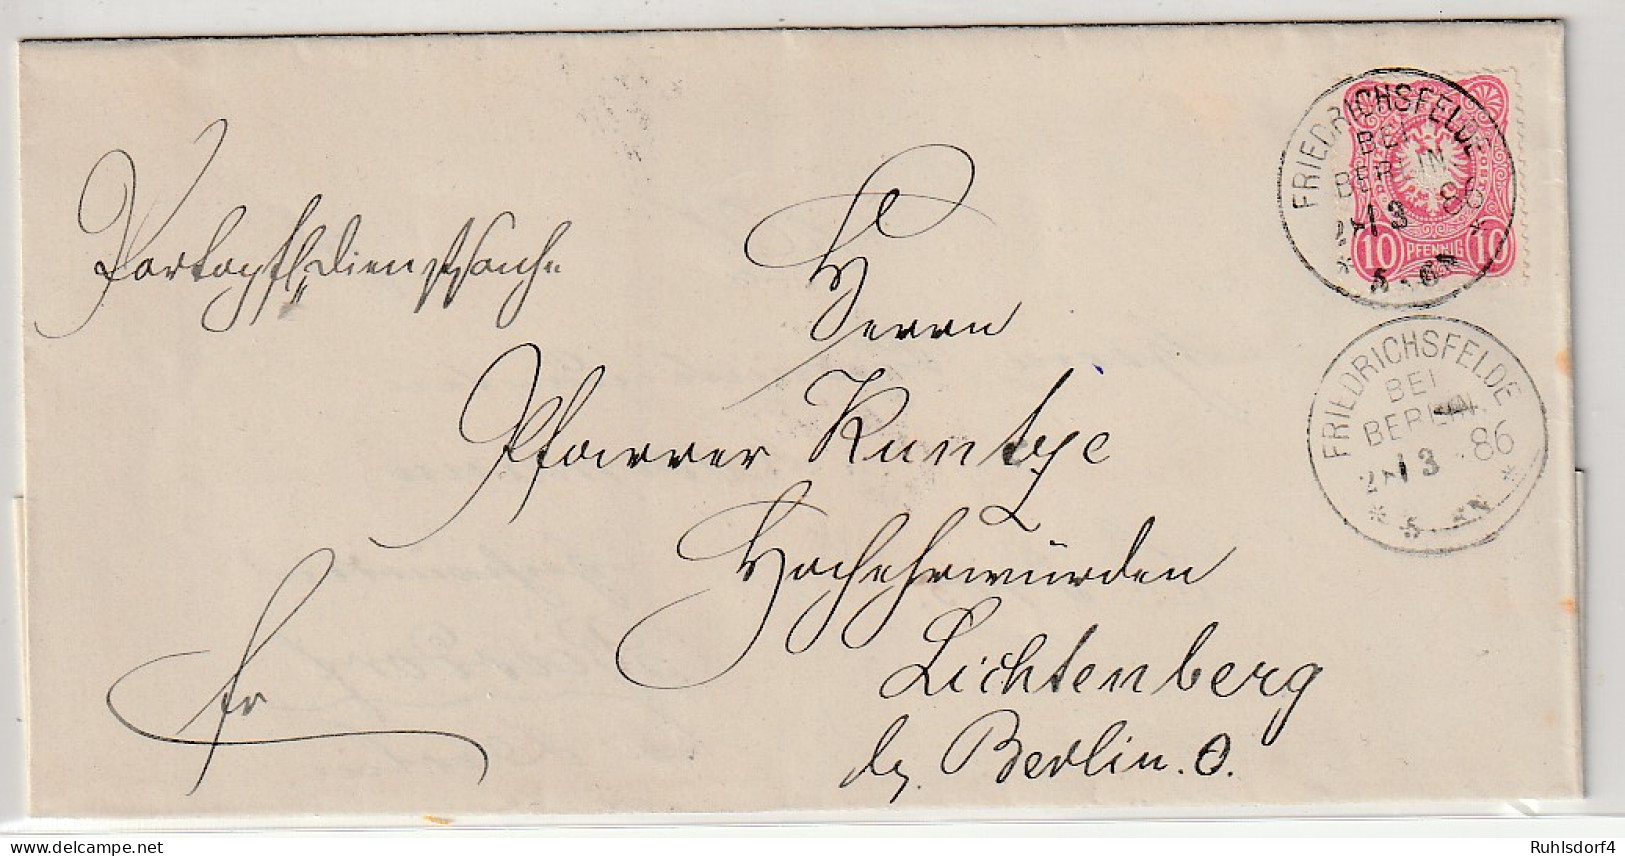 Portopfl. Dienstsache
Herrn
Pfarrer Kuntze
Hochehrwürden
Lichtenberg
bei Berlin. O.
fr
FRIEDRICHSFELDE
BEI
BERLIN
21 3 86
* 5-6N *
10 PFENNIG 10
FRIEDRICHSFELDE
BEI
BERLIN
21 3 86
* 5 6N *
delcampe.net
Ruhlsdorf4